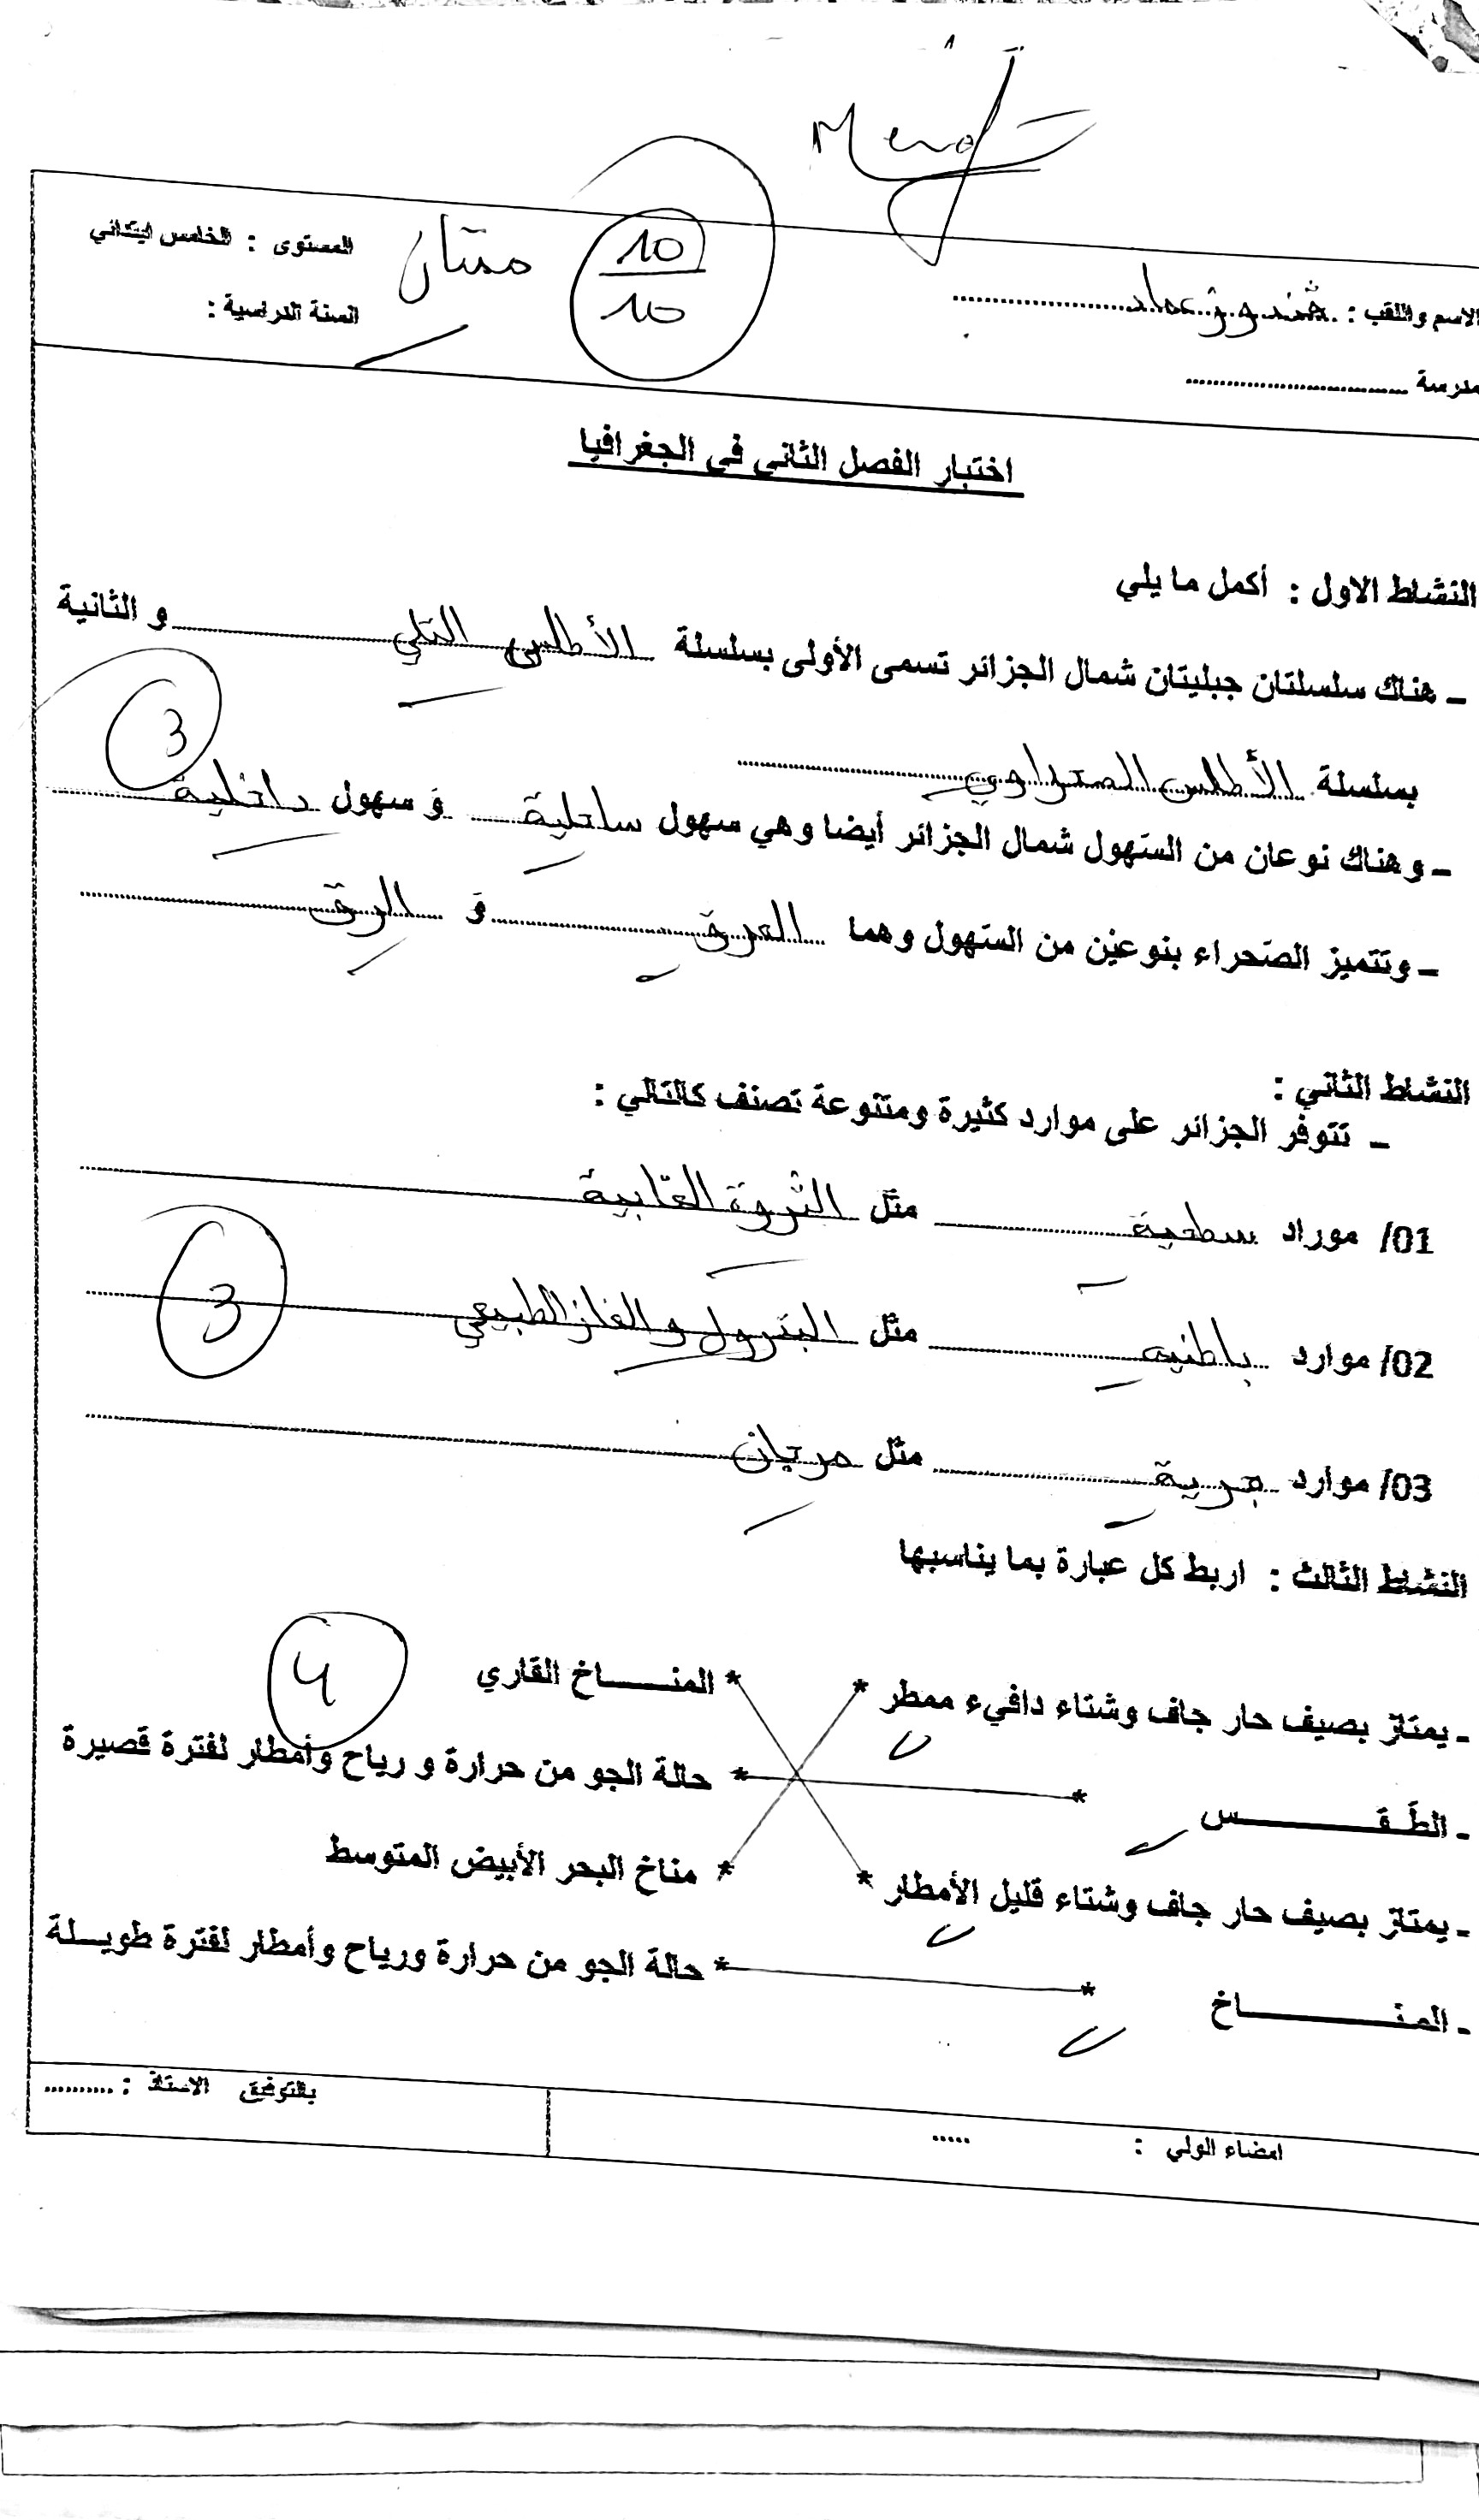 10
10
ممتاز
المستوى : الخامس ابتدائي
الاسم واللقب :
السنة الدراسية :
مدرسة
اختبار الفصل الثاني في الجغرافيا
النشاط الاول : أكمل ما يلي
- هناك سلسلتان جبليتان شمال الجزائر تسمى الأولى بسلسلة الأطلس التلي و الثانية
بسلسلة الأطلس الصحراوي
3
- وهناك نوعان من السّهول شمال الجزائر أيضا وهي سهول ساحلية وَ سهول داخلية
- وتتميز الصّحراء بنوعين من السّهول وهما العرق وَ الرق
النشاط الثاني :
- تتوفر الجزائر على موارد كثيرة ومتنوعة تصنف كالتالي :
01/ موراد سطحية مثل الثروة الغابية
02/ موارد باطنية مثل البترول والغاز الطبيعي
3
03/ موارد بحرية مثل مرجان
النشاط الثالث : اربط كل عبارة بما يناسبها
4
- يمتاز بصيف حار جاف وشتاء دافيء ممطر * * المنـــاخ القاري
- الطّـقـــــس * * حالة الجو من حرارة و رياح وأمطار لفترة قصيرة
- يمتاز بصيف حار جاف وشتاء قليل الأمطار * * مناخ البحر الأبيض المتوسط
- المنـــــــاخ * * حالة الجو من حرارة ورياح وأمطار لفترة طويـلة
امضاء الولي : .....
بالتوفيق الاستاذ : ..........